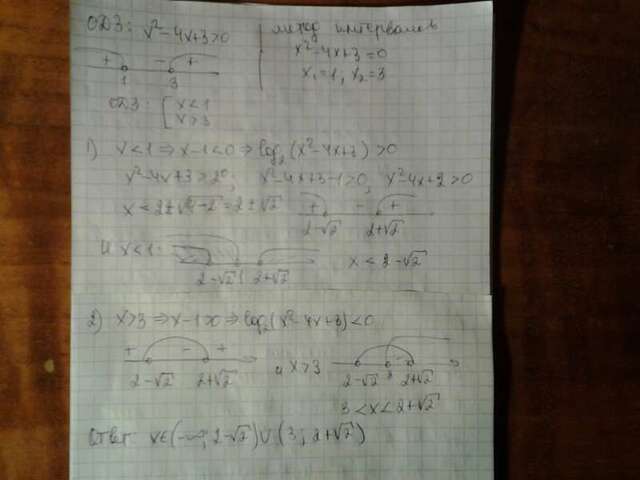 ОДЗ: x²-4x+3>0
метод интервалов
x²-4x+3=0
x₁=1, x₂=3
+ - +
1 3
ОДЗ: [x<1
x>3
1) x<1 ⇒ x-1<0 ⇒ log₂(x²-4x+3)>0
x²-4x+3>2⁰; x²-4x+3-1>0, x²-4x+2>0
x = 2±√4-2 = 2±√2
+ - +
2-√2 2+√2
и x<1:
2-√2 1 2+√2
x<2-√2
2) x>3 ⇒ x-1>0 ⇒ log₂(x²-4x+3)<0
+ - +
2-√2 2+√2
и x>3
2-√2 3 2+√2
3<x<2+√2
Ответ x∈(-∞; 2-√2)∪(3; 2+√2)